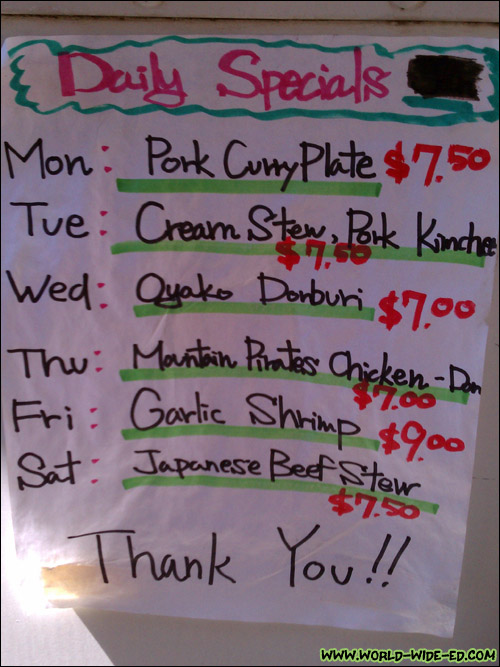 Daily Specials
Mon: Pork Curry Plate $7.50
Tue: Cream Stew, Pork Kimchee
$7.50
Wed: Oyako Donburi $7.00
Thu: Mountain Pirates Chicken-Don
$7.00
Fri: Garlic Shrimp $9.00
Sat: Japanese Beef Stew
$7.50
Thank You!!
WWW.WORLD-WIDE-ED.COM